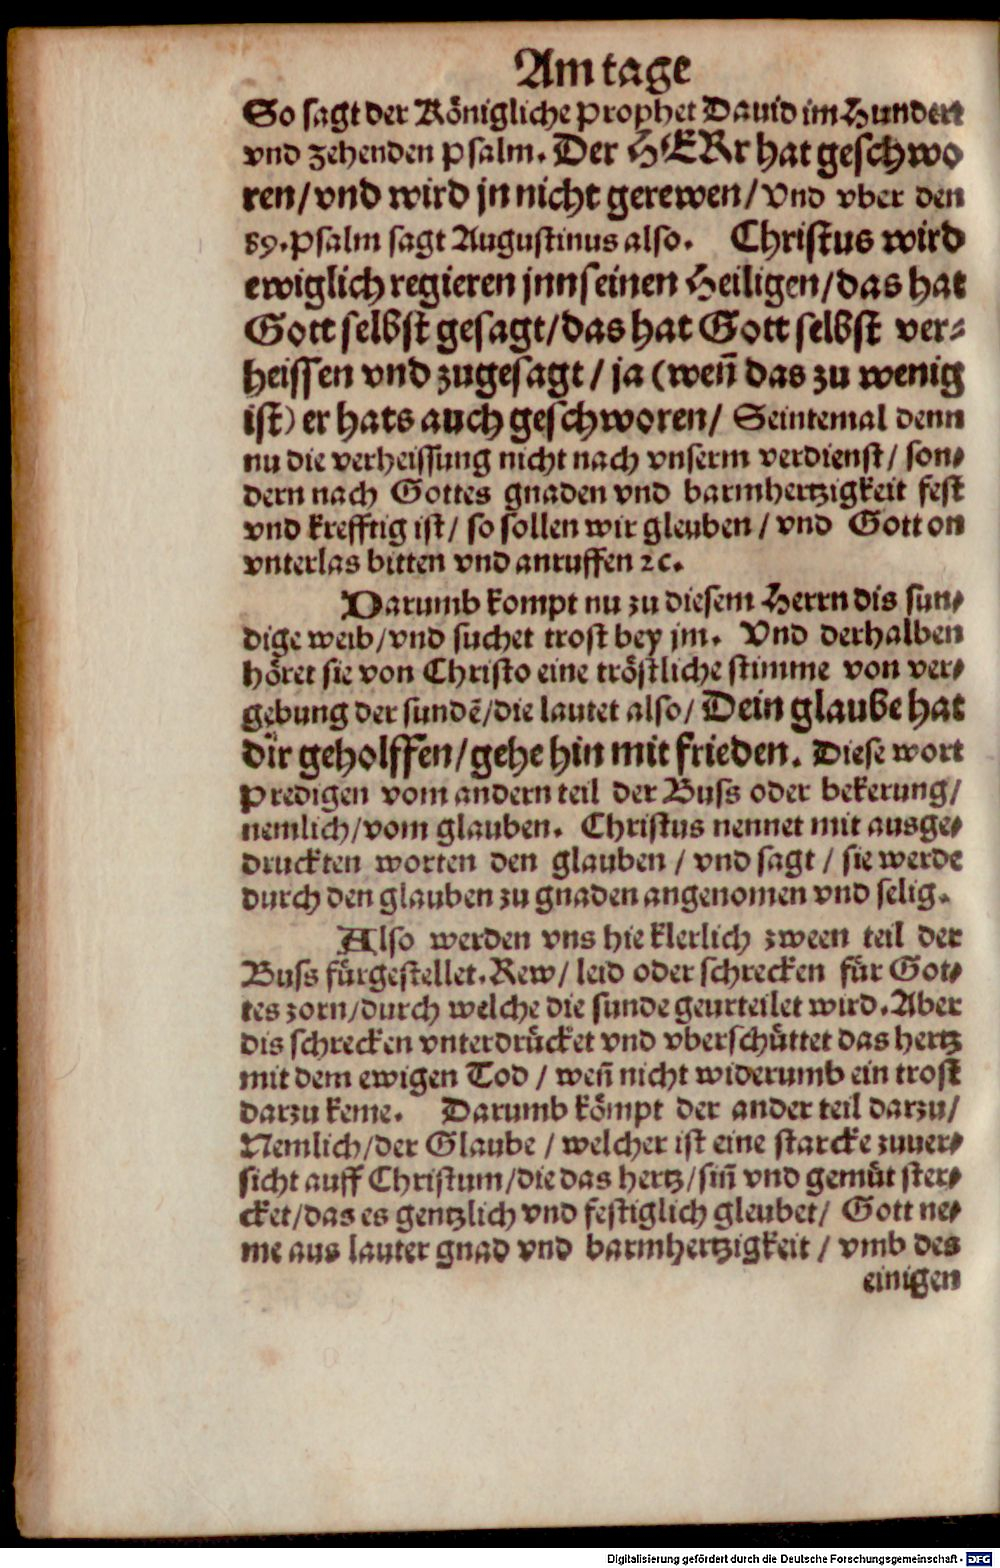 Am tage
So sagt der Königliche Prophet Dauid im Hundert
vnd zehenden Psalm. Der HERr hat geschwo
ren/vnd wird jn nicht gerewen/Vnd vber den
89. Psalm sagt Augustinus also. Christus wird
ewiglich regieren jnn seinen Heiligen/das hat
Gott selbst gesagt/das hat Gott selbst ver⸗
heissen vnd zugesagt/ja (weñ das zu wenig
ist) er hats auch geschworen/ Seintemal denn
nu die verheissung nicht nach vnserm verdienst/ son⸗
dern nach Gottes gnaden vnd barmhertzigkeit fest
vnd krefftig ist/ so sollen wir gleuben/ vnd Gott on
vnterlas bitten vnd anruffen ꝛc.
Darumb kompt nu zu diesem Herrn dis sun⸗
dige weib/vnd suchet trost bey jm. Vnd derhalben
höret sie von Christo eine tröstliche stimme von ver⸗
gebung der sundẽ/die lautet also/ Dein glaube hat
dir geholffen/gehe hin mit frieden. Diese wort
Predigen vom andern teil der Buss oder bekerung/
nemlich/vom glauben. Christus nennet mit ausge⸗
druckten worten den glauben/ vnd sagt/ sie werde
durch den glauben zu gnaden angenomen vnd selig.
Also werden vns hie klerlich zween teil der
Buss fürgestellet. Rew/ leid oder schrecken für Got⸗
tes zorn/durch welche die sunde geurteilet wird. Aber
dis schrecken vnterdrücket vnd vberschüttet das hertz
mit dem ewigen Tod/ weñ nicht widerumb ein trost
darzu keme. Darumb kömpt der ander teil darzu/
Nemlich/der Glaube/ welcher ist eine starcke zuuer⸗
sicht auff Christum/die das hertz/siñ vnd gemüt ster⸗
cket/das es gentzlich vnd festiglich gleubet/ Gott ne⸗
me aus lauter gnad vnd barmhertzigkeit/ vmb des
einigen
Digitalisierung gefördert durch die Deutsche Forschungsgemeinschaft - DFG